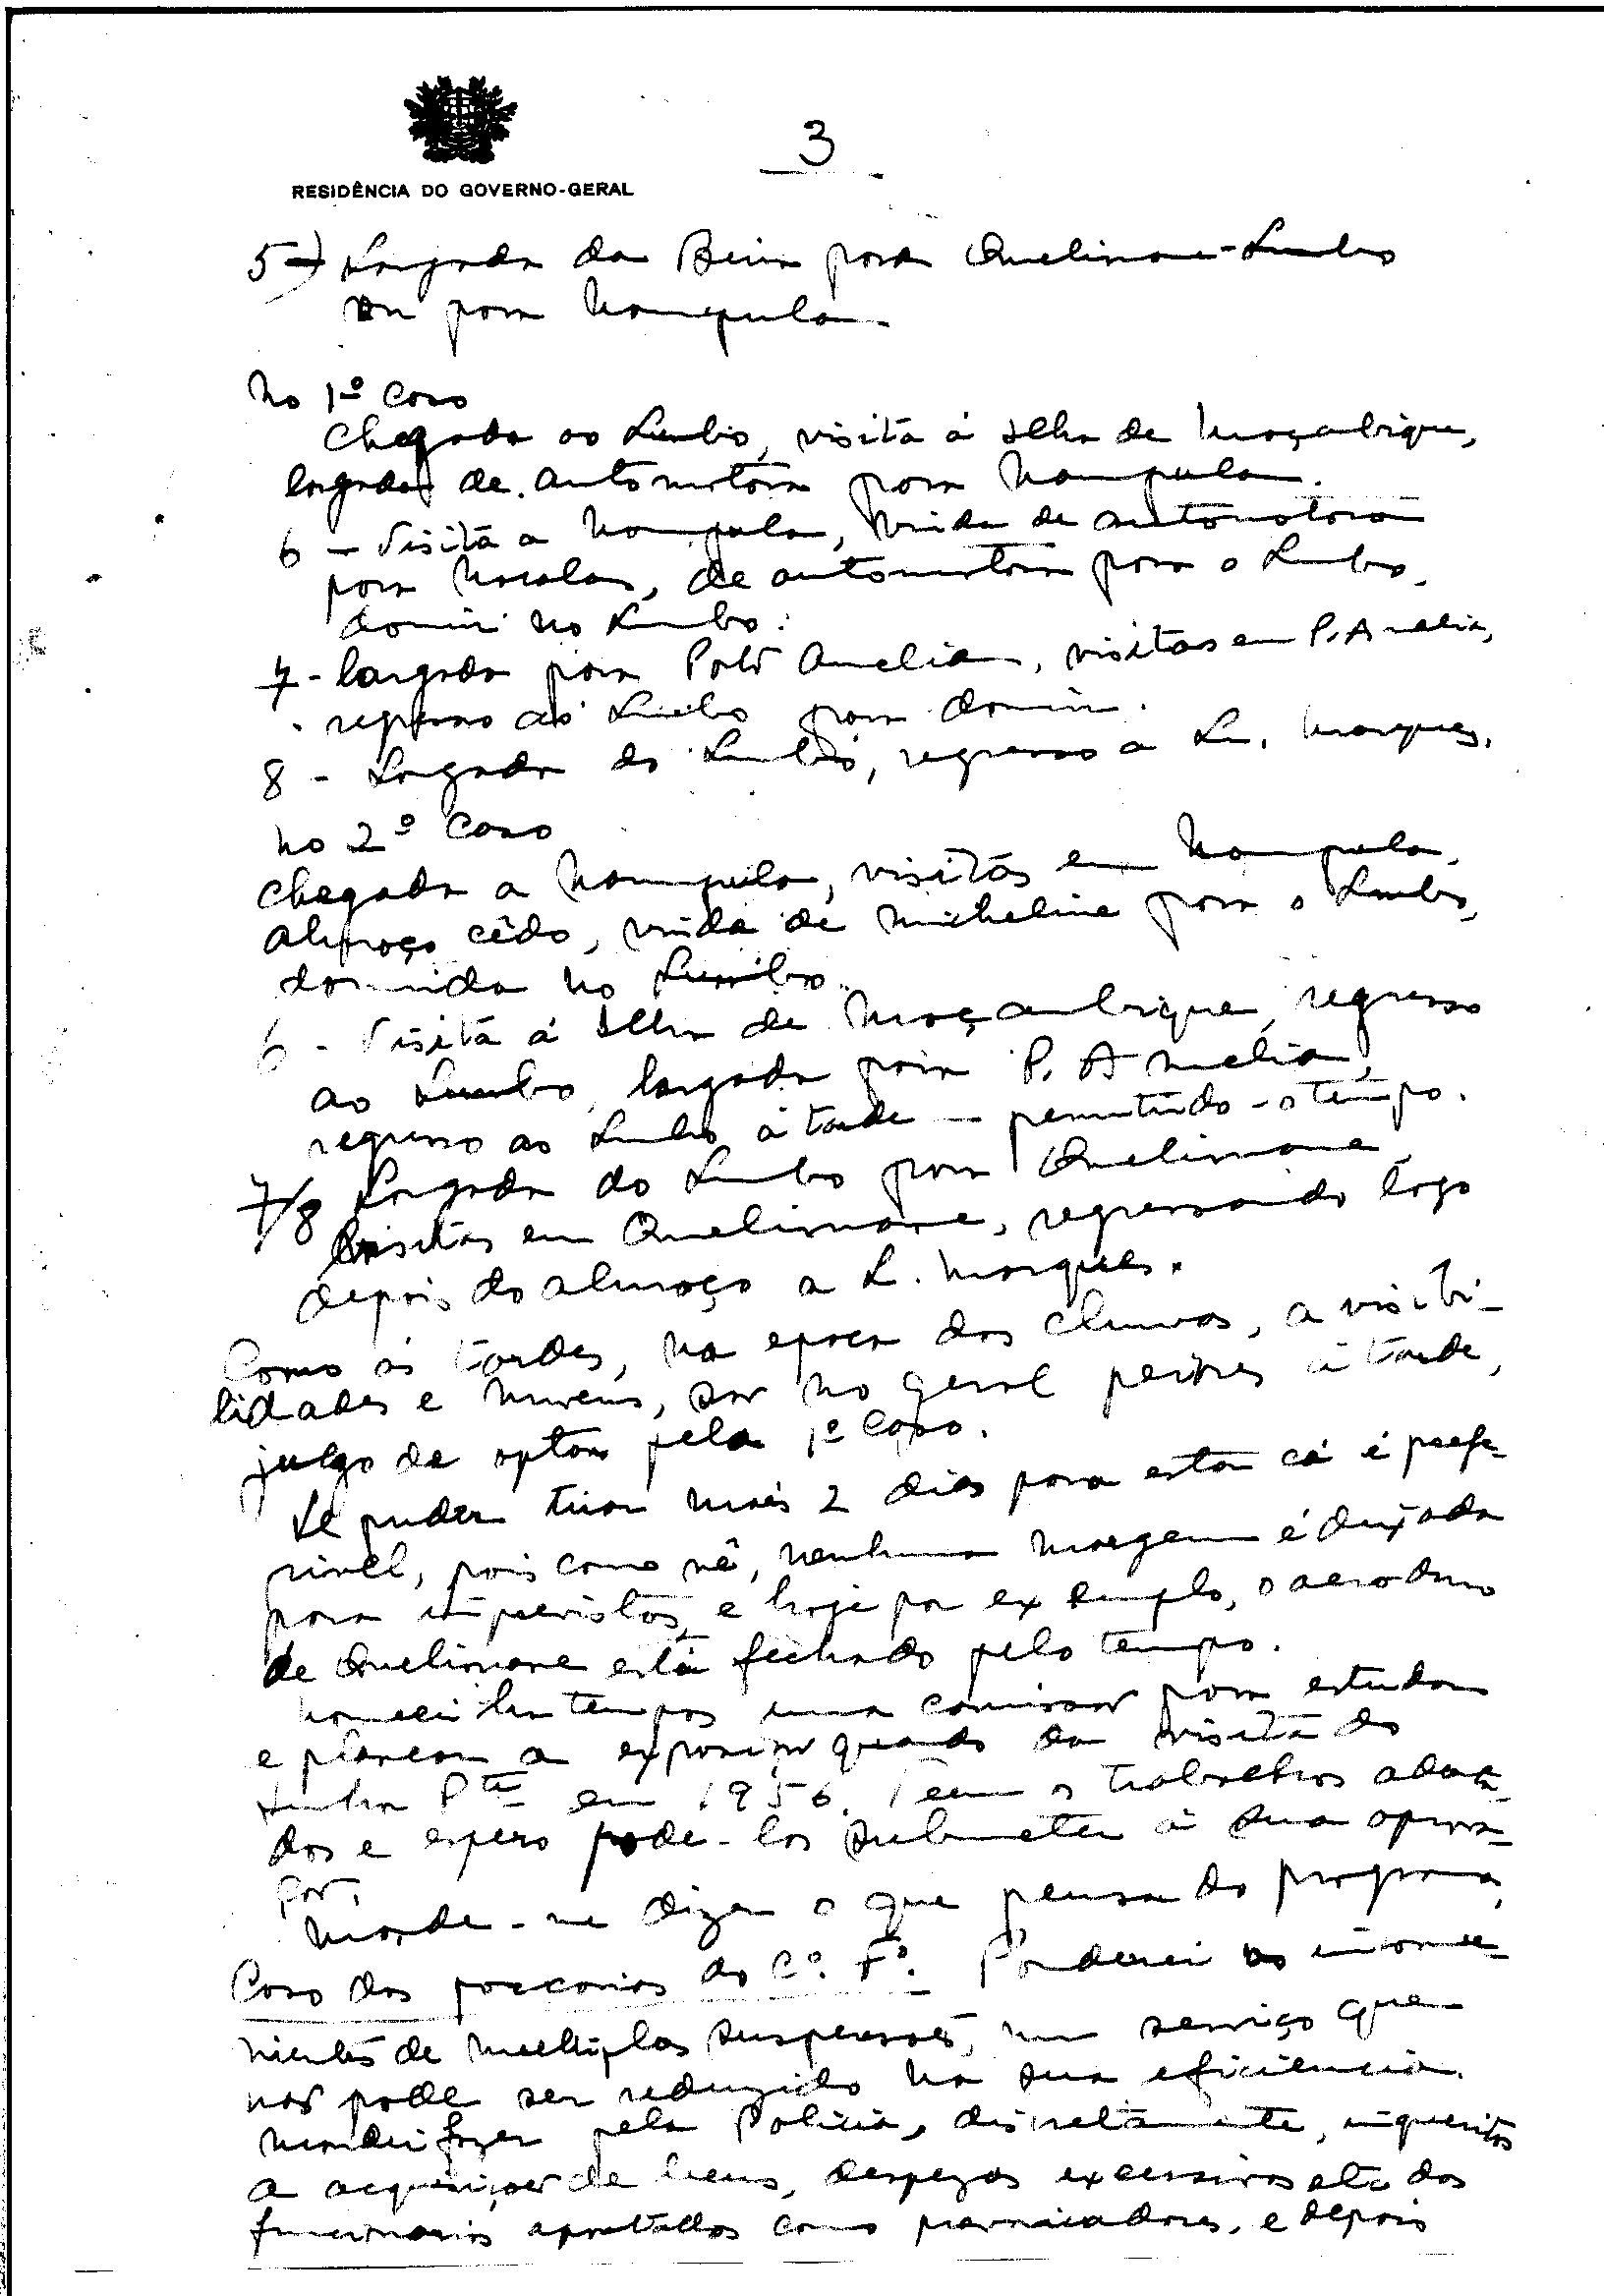 3
RESIDÊNCIA DO GOVERNO-GERAL
5 - Largada da Beira para Quelimane-Lumbo
ou para Nampula.
No 1º caso
Chegada ao Lumbo, visita á Ilha de Moçambique,
largada de automotora para Nampula.
6 - Visita a Nampula, vinda de automotora
para Nacala, de automotora para o Lumbo,
dormir no Lumbo.
7 - largada para Porto Amelia, visitas em P. Amelia,
regresso ao Lumbo para dormir.
8 - Largada do Lumbo, regresso a L. Marques.
No 2º caso
Chegada a Nampula, visitas em Nampula,
almoço cêdo, vinda de micheline para o Lumbo,
dormida no Lumbo.
6 - Visita á Ilha de Moçambique, regresso
ao Lumbo, largada para P. Amelia,
regresso ao Lumbo á tarde - permitindo-o tempo.
7/8 Largada do Lumbo para Quelimane,
Visitas em Quelimane, regressando logo
depois do almoço a L. Marques.
Como ás tardes, na epoca das chuvas, a visibi-
lidades e nuvens, são no geral peiores á tarde,
julgo de optar pelo 1º caso.
Se puder tirar mais 2 dias para estar cá é prefe-
rivel, pois como vê, nenhuma margem é deixada
para imprevistos, e hoje por exemplo, o aerodromo
de Quelimane está fechado pelo tempo.
Nomeei ha tempos uma comissão para estudar
e planear a exposição quando da visita do
Senhor Pte em 1956. Teem os trabalhos
dos e espero pode-los submeter á sua aprova-
ção.
Mande-me dizer o que pensa do programa,
Caso dos do C.º F.º. Ponderei os inconve-
nientes de multiplas suspensões, num serviço que
não pode ser reduzido na sua eficiencia.
Mandei fazer pela Policia, discretamente, inqueritos
a acquisições de bens, despezas excessivas etc dos
funcionarios apontados como prevaricadores, e depois